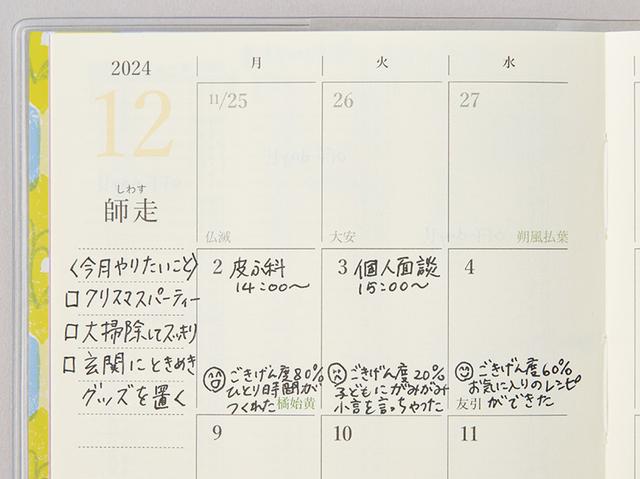 2024
12
しわす
師走
月
火
水
11/25
26
27
仏滅
大安
朔風払葉
〈今月やりたいこと〉
□クリスマスパーティー
□大掃除してスッキリ
□玄関にときめき
グッズを置く
2 皮ふ科
14:00〜
ごきげん度80%
ひとり時間が
つくれた
橘始黄
3 個人面談
15:00〜
ごきげん度20%
子どもにがみがみ
小言を言っちゃった
4
ごきげん度60%
お気に入りのレシピ
ができた
友引
9
10
11